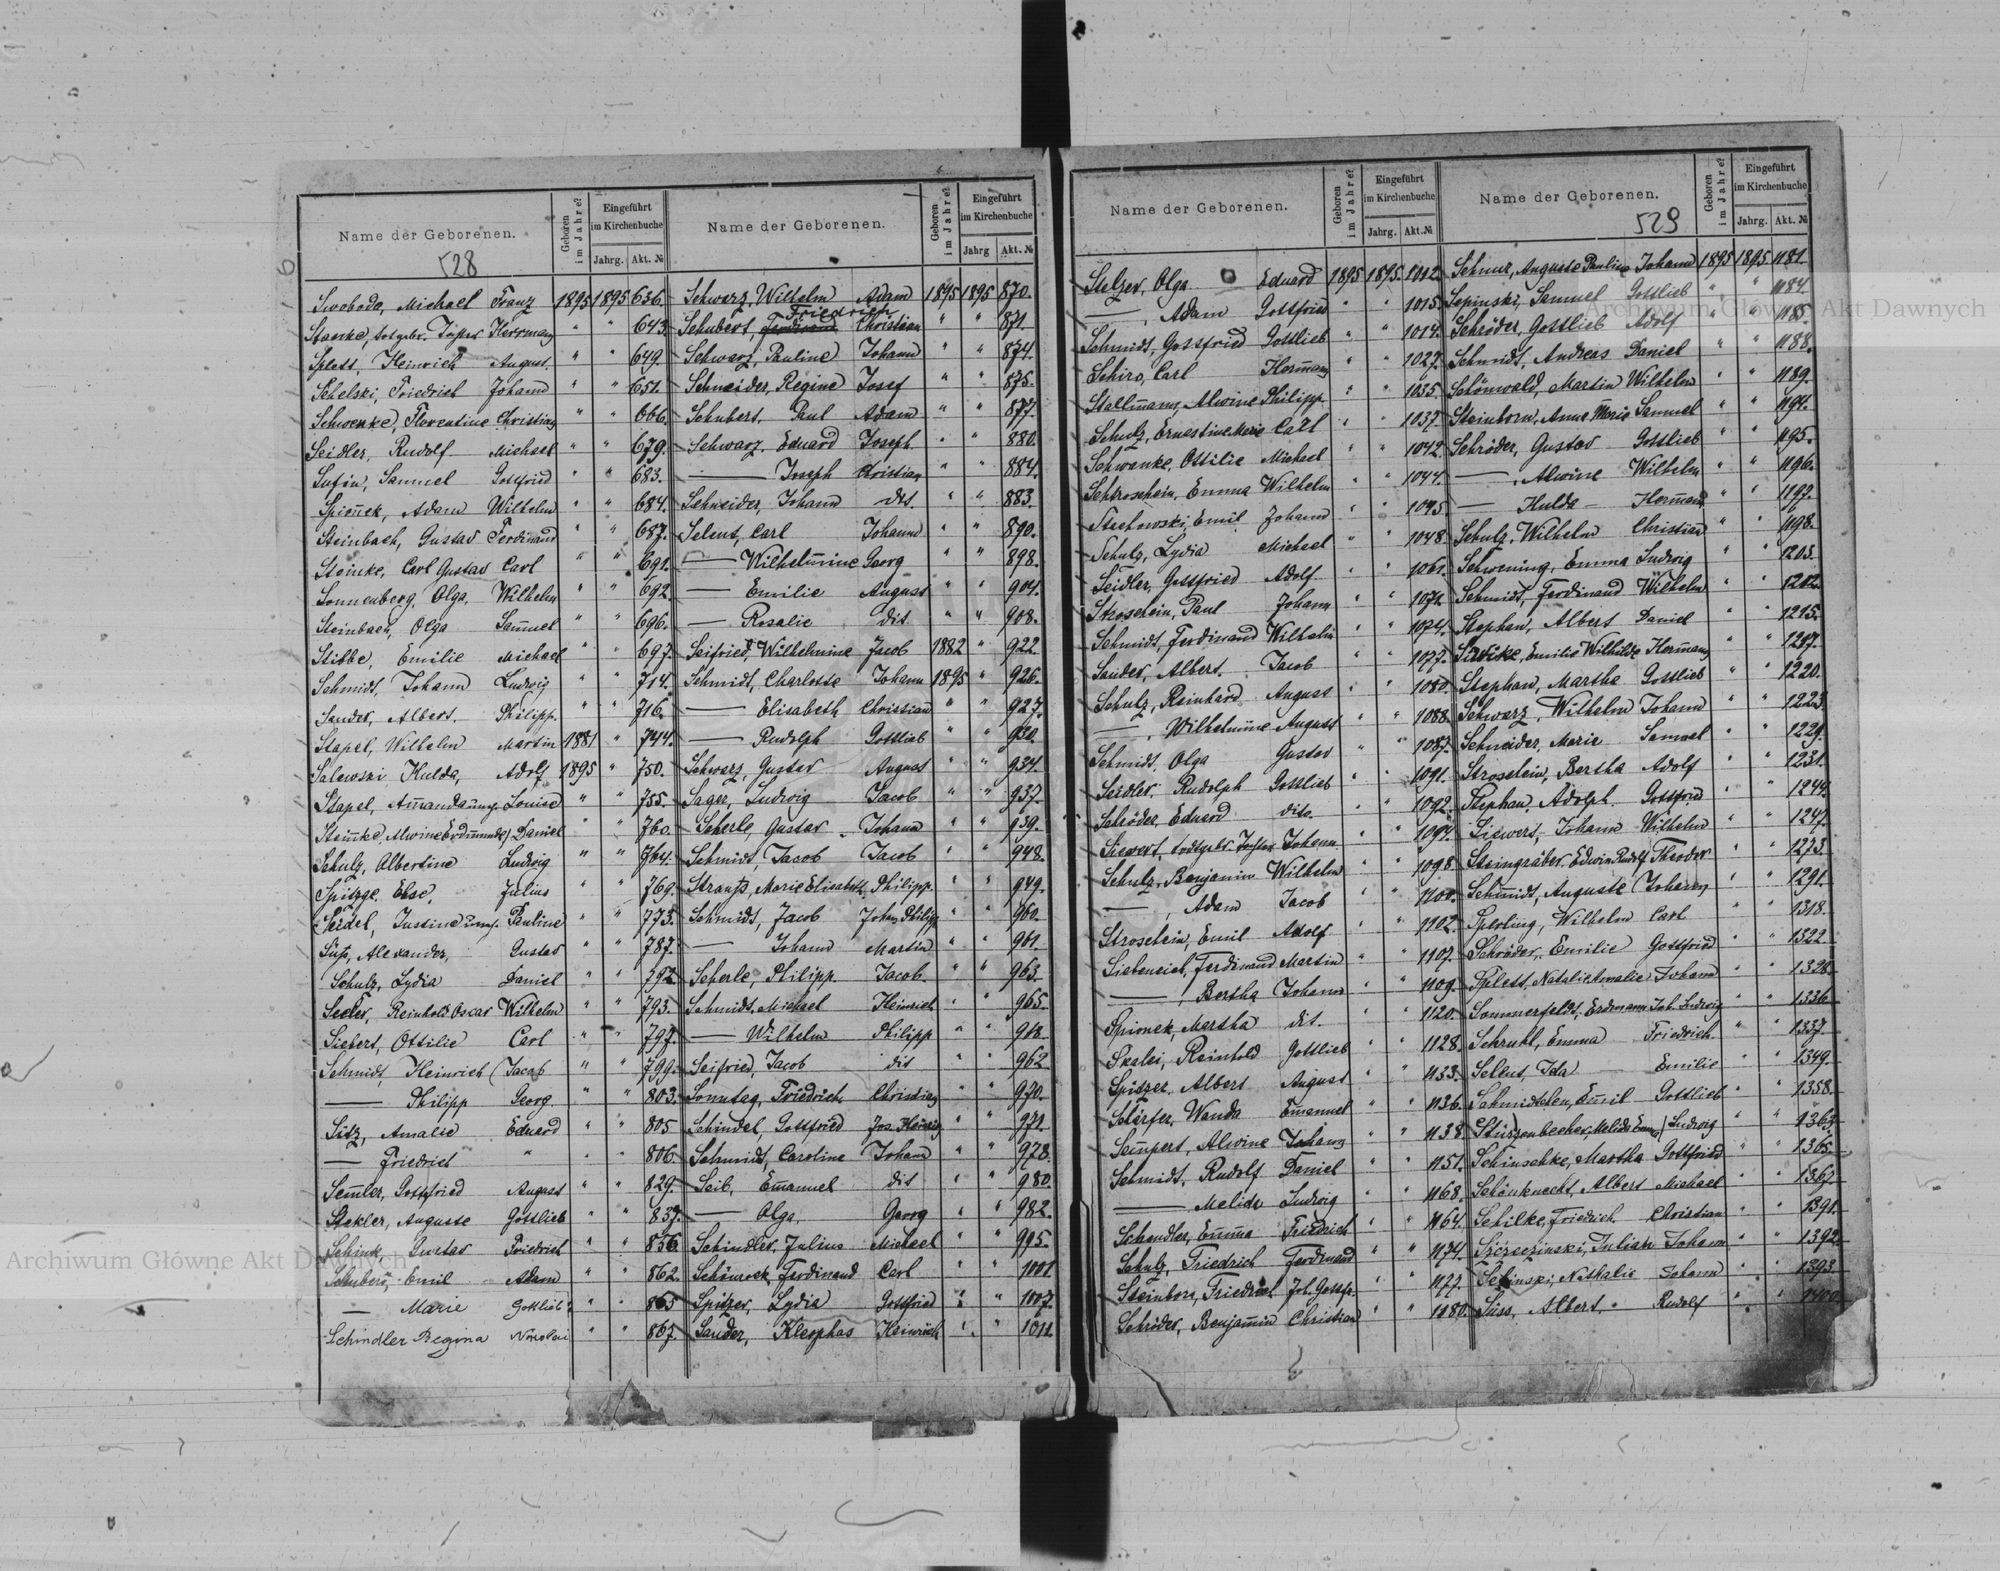 Name der Geborenen.
528
Geboren im Jahre?
Eingeführt im Kirchenbuche
Jahrg. Akt. №
Swoboda, Michael Franz 1895 1895 636.
Staerke, Herrmann " " 643.
Splett, Heinrich August. " " 649.
Schelski, Friedrich Johann " " 651.
Schwenke, Florentine Christian " " 666.
Seidler, Rudolf Michael " " 679.
Samuel Gottfried " " 683.
Spionek, Adam Wilhelm " " 684.
Steinbach, Gustav Ferdinand " " 687.
Steinke, Carl Gustav Carl " " 691.
Sonnenberg, Olga, Wilhelm " " 692.
Steinbach, Olga Samuel " " 696.
Stibbe, Emilie Michael " " 697.
Schmidt, Johann Ludwig " " 714.
Sander, Albert. Philipp. " " 716.
Stapel, Wilhelm Martin 1881 " 744.
Salewski, Hulda, Adolf 1895 " 750.
Stapel, Amanda Louise " " 755.
Steinke, Alwine Daniel " " 760.
Schulz, Albertine Ludwig " " 764.
Else, Julius " " 769.
Seidel, Justine Pauline " " 773.
Süß, Alexander, Gustav " " 787.
Schulz, Lydia Daniel " " 792.
Seeler, Reinhold Oscar Wilhelm " " 793.
Siebert, Ottilie Carl " " 797.
Schmidt, Heinrich Jacob " " 799.
— Philipp Georg " " 803.
Sitz, Amalie Eduard " " 805
— Friedrich " " " 806.
Semler, Gottfried August " " 829.
Stekler, Auguste Gottlieb " " 837.
Schink, Gustav Friedrich " " 856
Schubert, Emil Adam " " 862.
— Marie Gottlieb " " 865
Schindler Regina Nikolai " " 867.
Name der Geborenen.
Geboren im Jahre?
Eingeführt im Kirchenbuche
Jahrg Akt. №
Schwarz, Wilhelm Adam 1895 1895 870.
Friedrich
Schubert, Ferdinand Christian " " 871.
Schwarz, Pauline Johann " " 874.
Schneider, Regine Josef " " 875.
Schubert, Paul Adam " " 877.
Schwarz, Eduard Joseph. " " 880.
— Joseph Christian " " 884.
Schneider, Johann dit. " " 883.
Selent, Carl Johann " " 890.
— Wilhelmine Georg " " 898.
— Emilie August " " 904.
— Rosalie dit " " 908.
Seifried, Wilhelmine Jacob 1882 " 922.
Schmidt, Charlotte Johann 1895 " 926.
— Elisabeth Christian " " 927.
— Rudolph Gottlieb " " 930.
Schwarz, Gustav August " " 934.
Sager, Ludwig Jacob " " 937.
Scherle, Gustav Johann " " 939.
Schmidt, Jacob Jacob " " 948.
Strauß, Marie Elisabeth Philipp. " " 949.
Schmidt, Jacob Johan Philipp " " 960.
— Johann Martin " " 961.
Scherle, Philipp. Jacob. " " 963.
Schmidt, Michael Heinrich " " 965.
— Wilhelm Philipp " "
Seifried, Jacob dit " " 962
Sonntag, Friedrich Christian " " 970.
Schindel, Gottfried Jos. Heinrig " " 971.
Schmidt, Caroline Johann " " 978.
Seib, Emanuel dit " " 980.
— Olga. Georg " " 982.
Schindler, Julius Michael " " 995.
Ferdinand Carl " " 1001.
Spitzer, Lydia Gottfried " " 1007.
Sander, Kleophas Heinrich " " 1011.
Name der Geborenen.
Geboren im Jahre?
Eingeführt im Kirchenbuche
Jahrg. Akt. №
Stelzer, Olga Eduard 1895 1895 1012.
—, Adam Gottfried " " 1015.
Schmidt, Gottfried Gottlieb " " 1014.
Schiro, Carl Hermann " " 1027.
Stallmann, Alwine Philipp. " " 1035.
Schulz, Ernestine Marie Carl " " 1037.
Schwanke, Ottilie Michael " " 1042.
Emma Wilhelm " " 1044.
Stachowski, Emil. Johann " " 1045
Schulz, Lydia Michael " " 1048.
Seidler, Gottfried Adolf " " 1061.
Stroschein, Paul Johann " " 1071.
Schmidt, Ferdinand Wilhelm " " 1074.
Sander, Albert. Jacob " " 1077.
Schulz, Reinhard August " " 1080.
—, Wilhelmine August " " 1088.
Schmidt, Olga Gustav " " 1087.
Seidler, Rudolph Gottlieb " " 1091.
Schröder, Eduard dito. " " 1092.
Siewert, todtgebr. Tochter Johann " " 1097.
Schulz, Benjamin Wilhelm " " 1098.
—, Adam Jacob " " 1100.
Stroschein, Emil Adolf " " 1102.
Ferdinand Martin " " 1107.
—, Bertha Johann " " 1109.
Spionek, Martha dit. " " 1120.
Skalei, Reinhold Gottlieb " " 1128.
Spitzer, Albert August " " 1133.
Schärfer, Wanda Emanuel " " 1136.
Alwine Johann " " 1138.
Schmidt, Rudolf Daniel " " 1151.
— Melida Ludwig " " 1168.
Schendler, Emma Friedrich " " 1164.
Schulz, Friedrich Ferdinand " " 1174.
Steinborn, Friedrich Joh. Gottfr. " " 1177.
Schröder, Benjamin Christian " " 1180.
Name der Geborenen.
529
Geboren im Jahre?
Eingeführt im Kirchenbuche
Jahrg. Akt. №
Schnur, Auguste Pauline Johann 1895 1895 1181.
Sepinski, Samuel Gottlieb " " 1184.
Schröder, Gottlieb Adolf " " 1185
Schmidt, Andreas Daniel " " 1188.
Schönwald, Martin Wilhelm " " 1189.
Steinborn, Anna Marie Samuel " " 1194.
Schröder, Gustav Gottlieb " " 1195.
—, Alwine Wilhelm " " 1196.
— Hulda Hermann " " 1197.
Schulz, Wilhelm Christian " " 1198.
Schwening, Emma Ludwig " " 1203.
Schmidt, Ferdinand Wilhelm " " 1212.
Stephan, Albert Daniel " " 1215.
Emilie Wilhilde Hermann " " 1217.
Stephan, Martha Gottlieb " " 1220.
Schwarz, Wilhelm Johann " " 1223.
Schneider, Marie Samuel " " 1229.
Stroschein, Bertha Adolf " " 1231.
Stephan, Adolph. Gottfried " " 1244.
Siewert, Johann Wilhelm " " 1247.
Steingräber, Edwin Rudolf Theodor " " 1273.
Schmidt, Auguste Johann " " 1291.
Sperling, Wilhelm Carl " " 1318.
Schröder, Emilie Gottfried " " 1322.
Splett, Natalie Amalie Johann " " 1328.
Sommerfeldt, Erdmann Joh. Ludwig " " 1336
Emma Friedrich " " 1337.
Selent, Ida Emilie " " 1349.
Emil Gottlieb " " 1358.
Stürzenbecher, Melida Emma Ludwig " "
Schinschke, Martha Gottfried " " 1365.
Schönknecht, Albert Michael " " 1367.
Schilke, Friedrich Christian " " 1391.
Julian Johann " " 1392.
Nathalie Johann " " 1393.
Süss, Albert. Rudolf " "
Archiwum Główne Akt Dawnych
Archiwum Główne Akt Dawnych